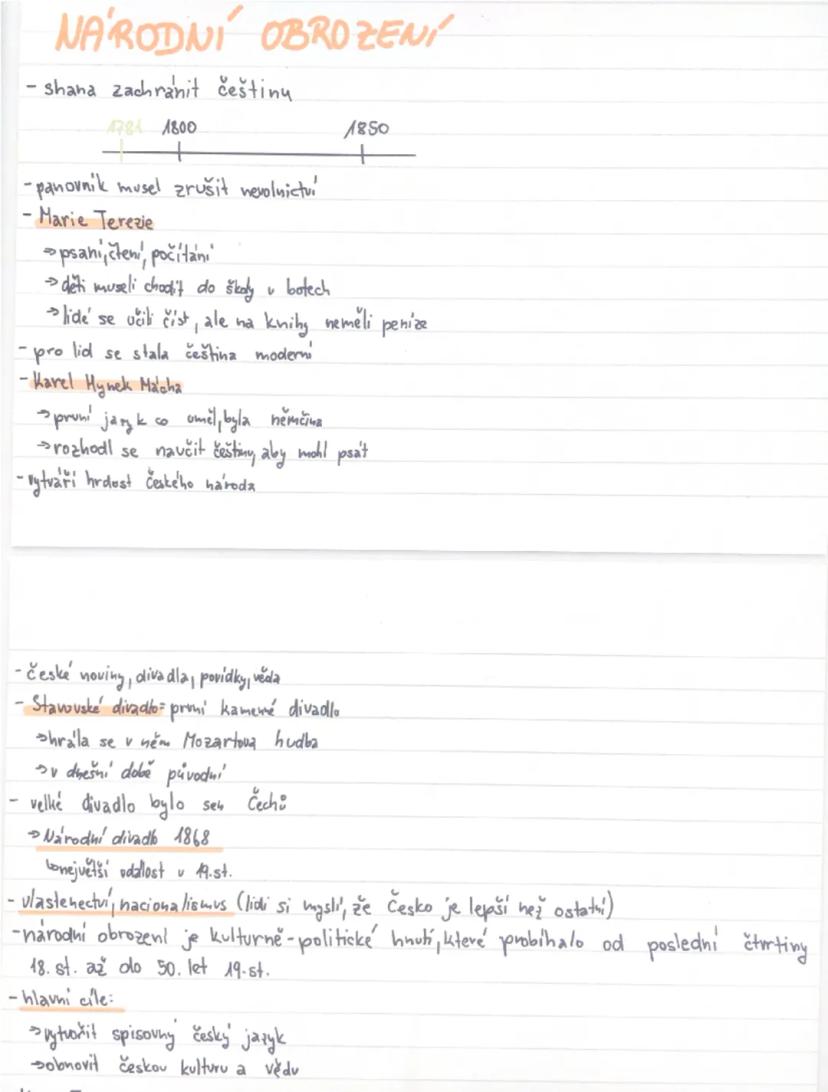 NÁRODNÍ OBROZENÍ
- snaha zachránit češtinu
1781 1800 1850
- panovník musel zrušit nevolnictví
- Marie Terezie
→ psaní, čtení, počítání
→ děti museli chodit do školy v botech
→ lidé se učili číst, ale na knihy neměli peníze
- pro lid se stala čeština moderní
- Karel Hynek Mácha
→ první jazyk co uměl, byla němčina
→ rozhodl se naučit češtiny, aby mohl psát
- vytváří hrdost českého národa
- české noviny, divadla, povídky, věda
- Stavovské divadlo = první kamenné divadlo
→ hrála se v něm Mozartova hudba
→ v dnešní době původní
- velké divadlo bylo sen Čechů
→ Národní divadlo 1868
↳ největší událost v 19. st.
- vlastenectví, nacionalismus (lidi si myslí, že Česko je lepší než ostatní)
- národní obrození je kulturně-politické hnutí, které probíhalo od poslední čtvrtiny
18. st. až do 50. let 19. st.
- hlavní cíle:
→ vytvořit spisovný český jazyk
→ obnovit českou kulturu a vědu